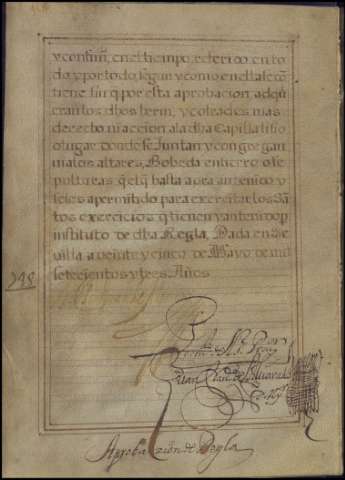 y confirm, en el tiempo referido, en to
do, y por todo, segun y como en ella se cō
tiene sin q̄ por esta aprobacion adqui
eran los dhos herm, y cofrades mas
derecho ni accion a la dha Capilla sitio
o lugar donde se Juntan, y congregan
ni a los altares, Bobeda entierro o se
pulturas q̄ el q̄ hasta aora an tenido y
se les a permitido para exercitar los sā
tos exercicios q̄ tienen y an tenido p
instituto de dha Regla. Dada en Se
villa a veinte y cinco de Mayo de mil
setecientos y tres Años
Aprobazion de Regla